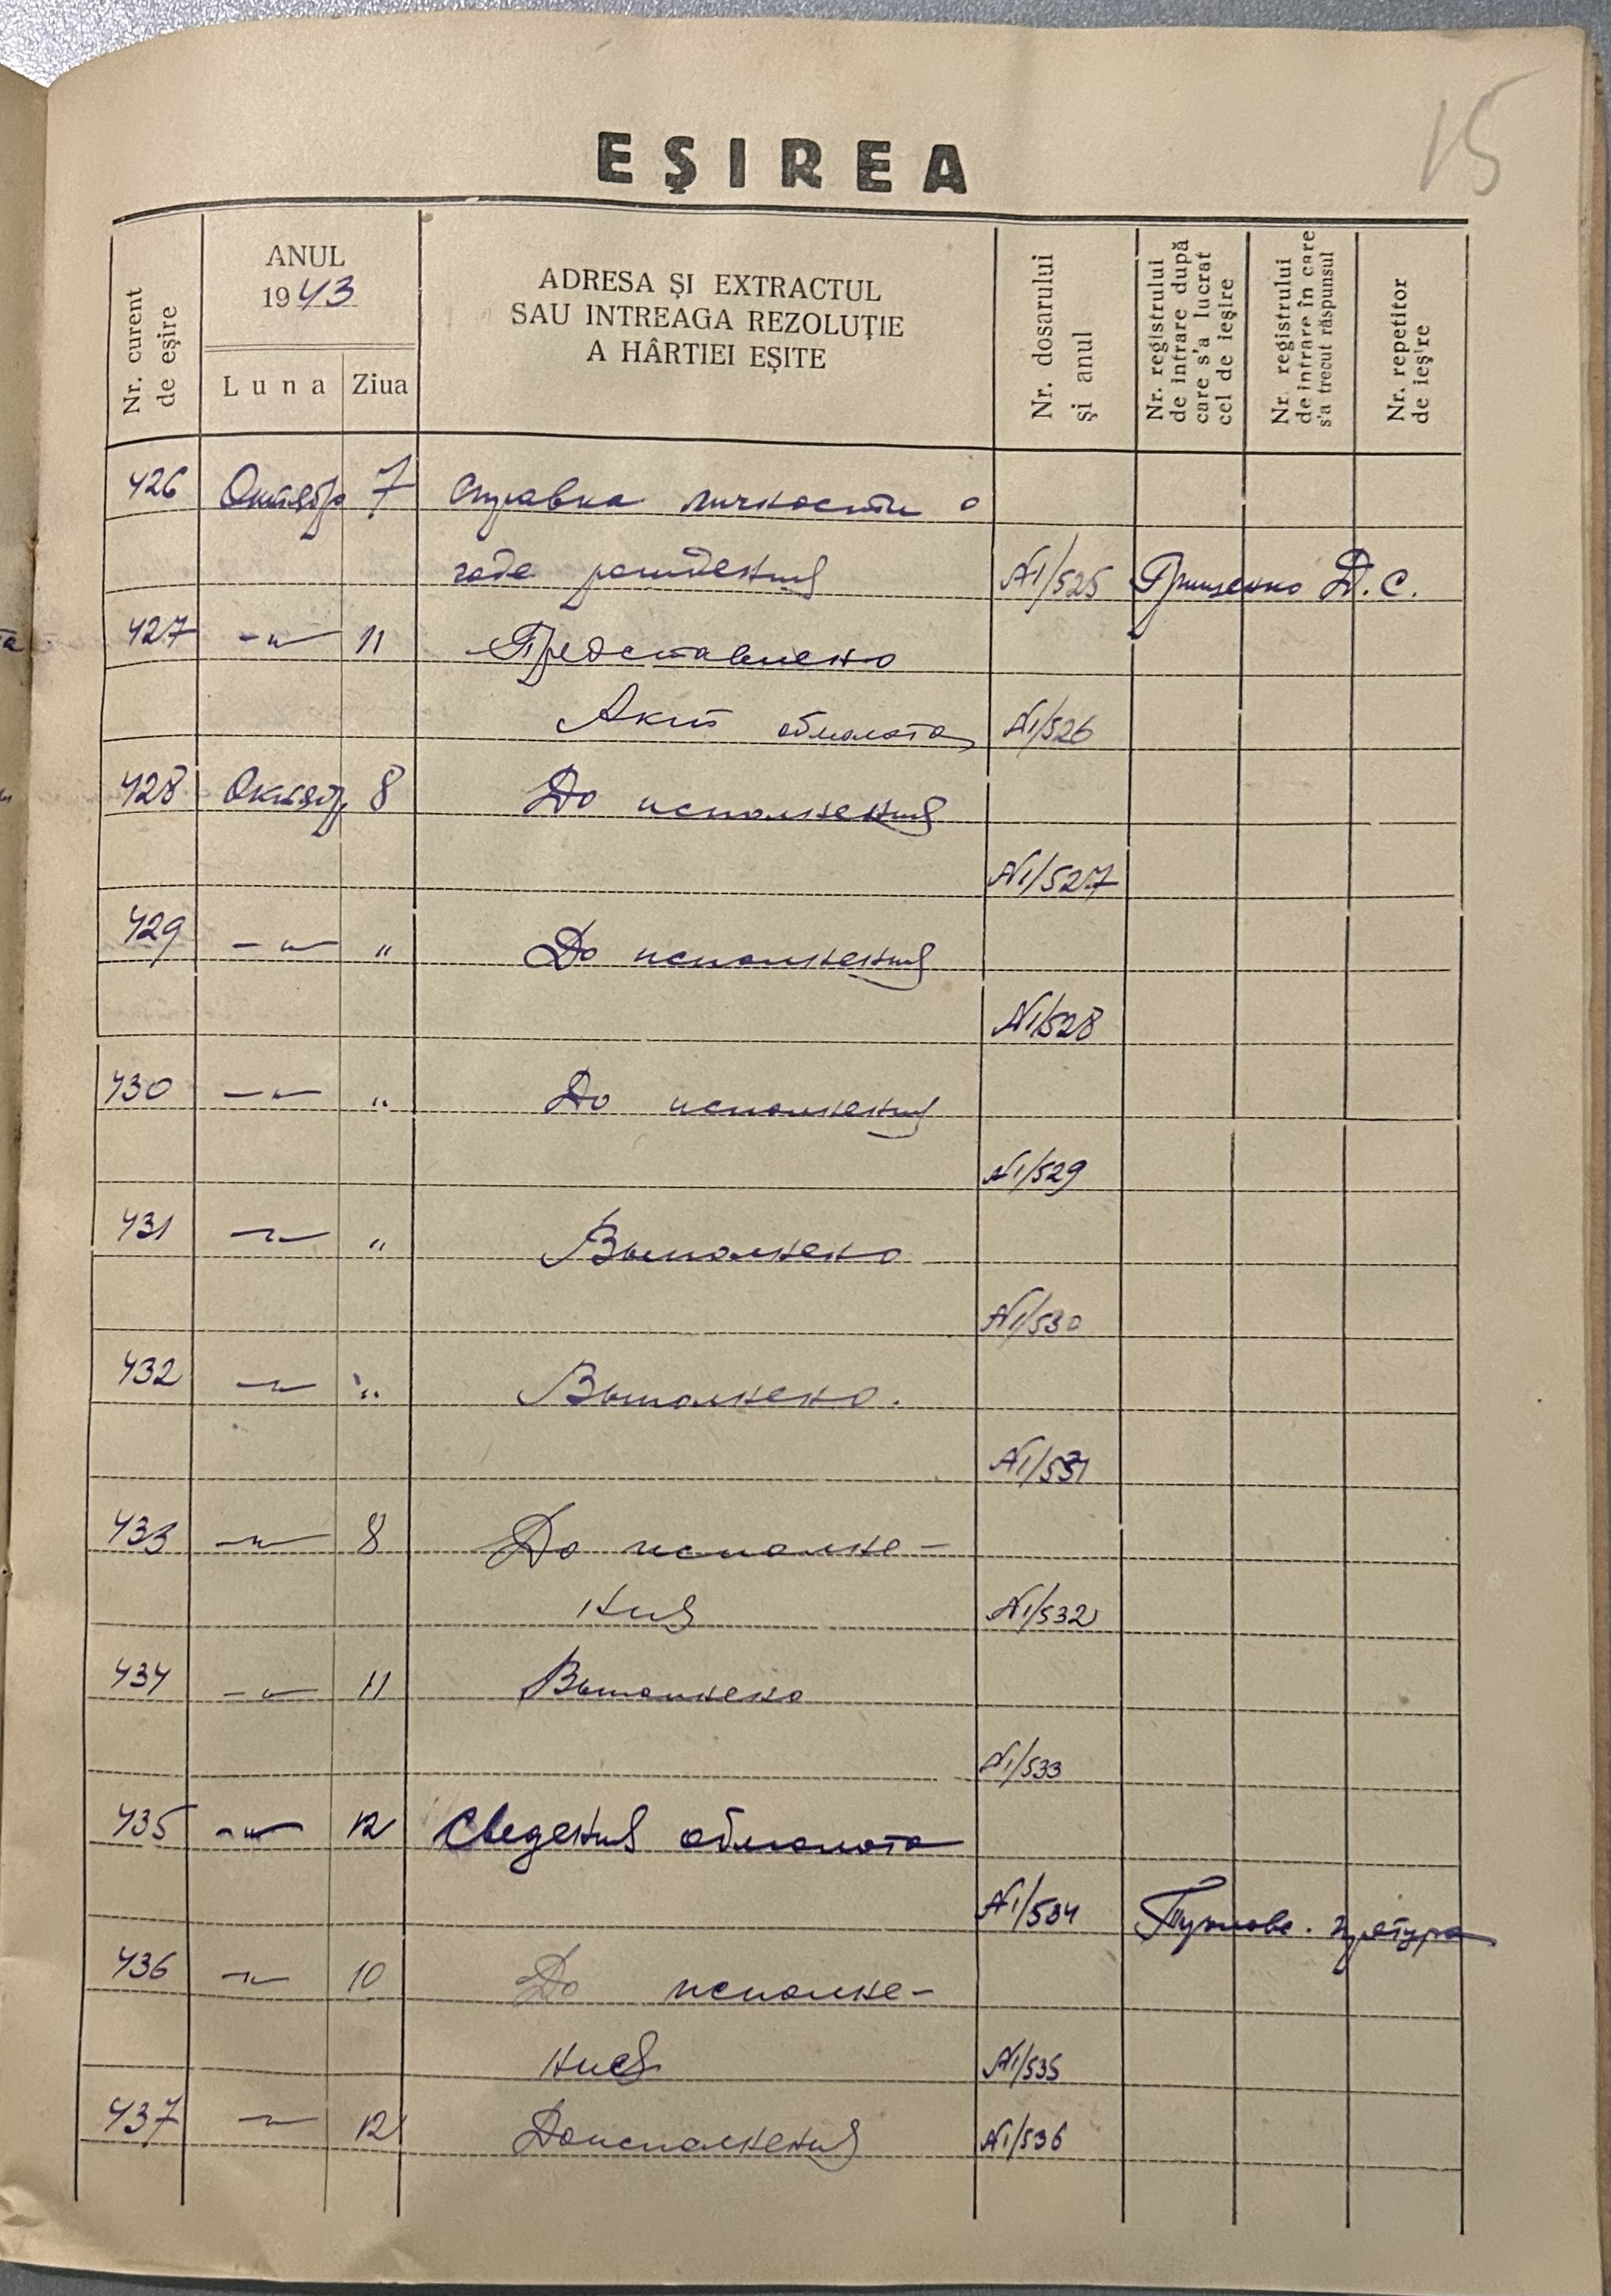 15
EȘIREA
Nr. curent de eșire
ANUL
1943
Luna
Ziua
ADRESA ȘI EXTRACTUL
SAU INTREAGA REZOLUȚIE
A HÂRTIEI EȘITE
Nr. dosarului
și anul
Nr. registrului
de intrare după
care s'a lucrat
cel de ieșire
Nr. registrului
de intrare în care
s'a trecut răspunsul
Nr. repetitor
de ieșire
426 Октябр 7 Справка личности о
годе рождения №1/525 Грищенко Д.С.
427 -„- 11 Представлено
Акт обмолота №1/526
428 Октябр 8 До исполнения
№1/527
429 -„- „ До исполнения
№1/528
430 -„- „ До исполнения
№1/529
431 -„- „ Выполнено
№1/530
432 -„- „ Выполнено.
№1/531
433 -„- 8 До исполне-
ния №1/532
434 -„- 11 Выполнено
№1/533
435 -„- 12 Сведения обмолота
№1/534
436 -„- 10 До исполне-
ния №1/535
437 -„- 12 Доисполнения №1/536